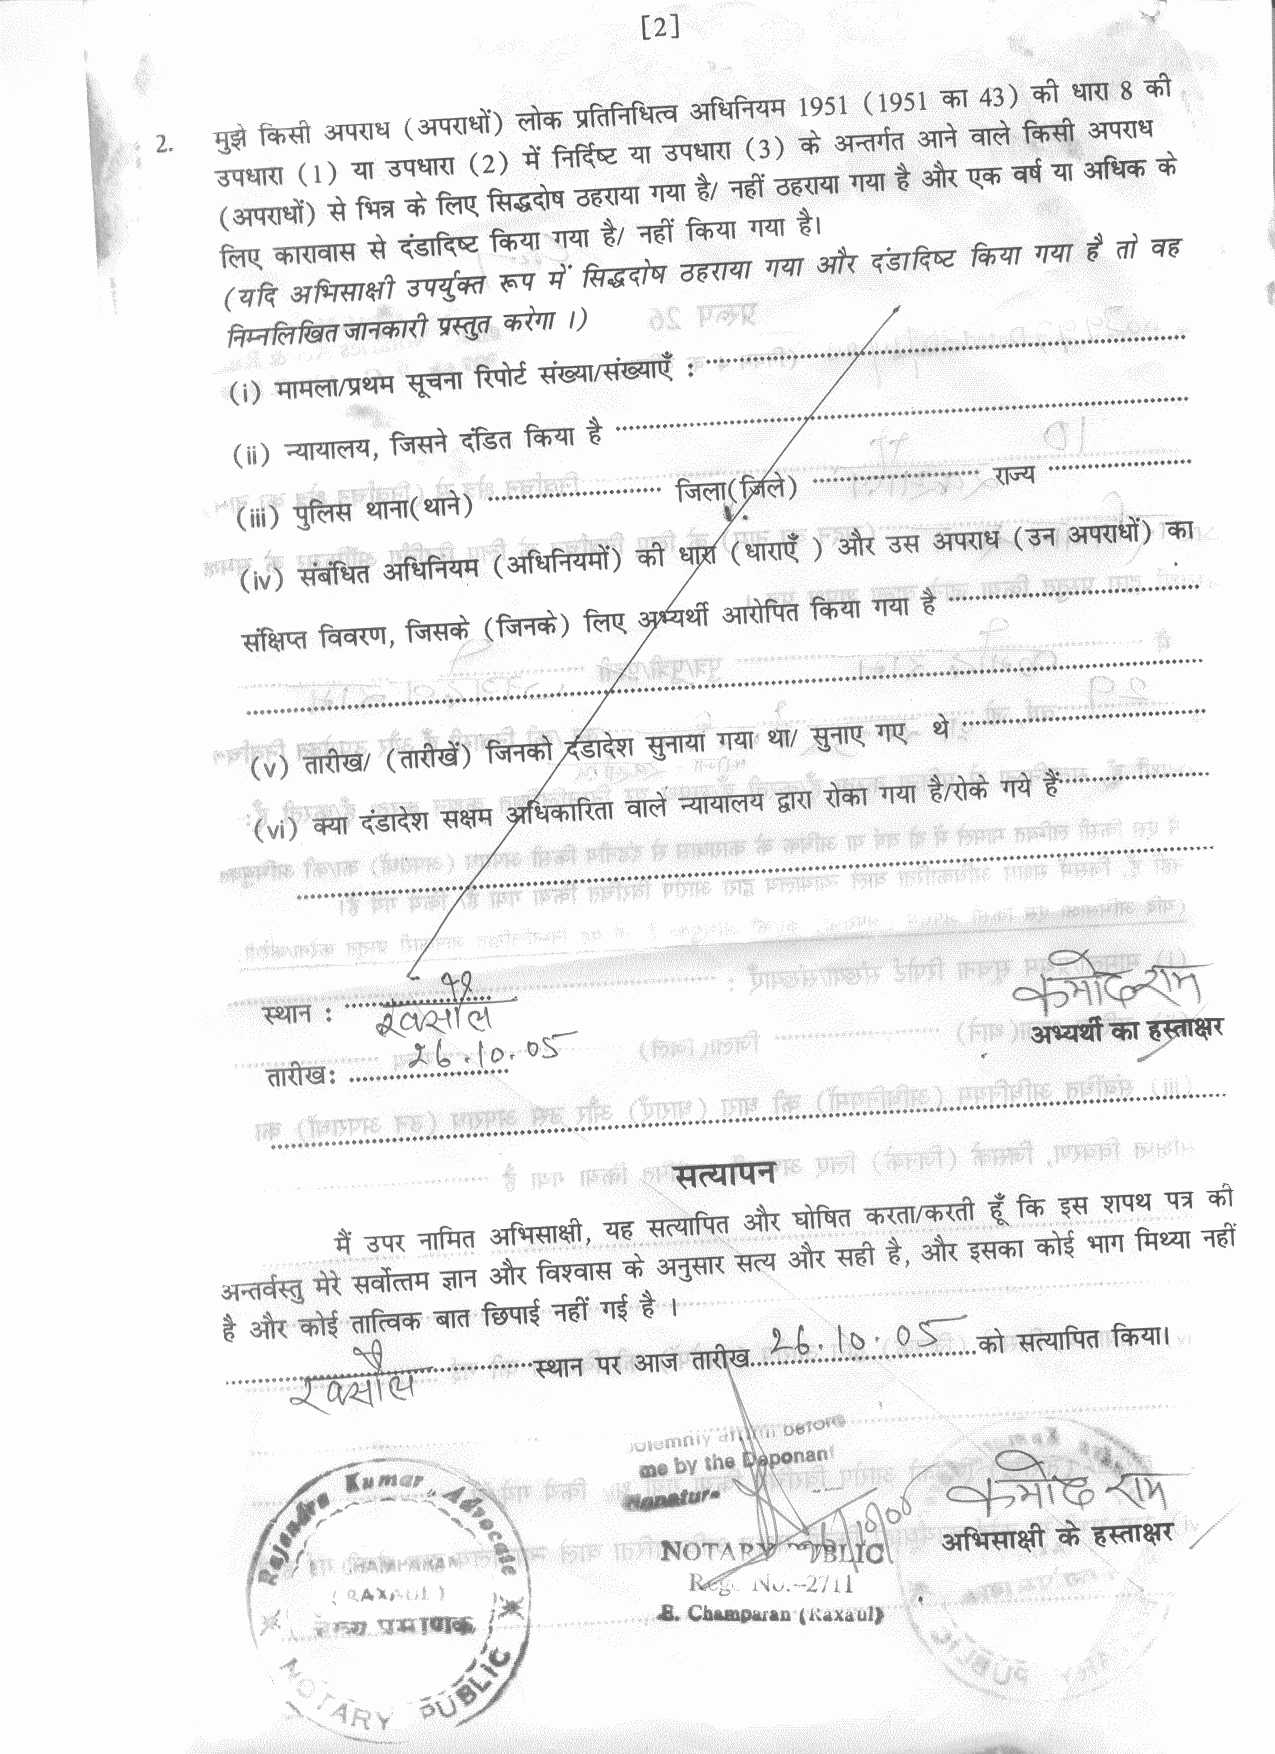 [2]
2. मुझे किसी अपराध (अपराधों) लोक प्रतिनिधित्व अधिनियम 1951 (1951 का 43) की धारा 8 की
उपधारा (1) या उपधारा (2) में निर्दिष्ट या उपधारा (3) के अन्तर्गत आने वाले किसी अपराध
(अपराधों) से भिन्न के लिए सिद्धदोष ठहराया गया है/ नहीं ठहराया गया है और एक वर्ष या अधिक के
लिए कारावास से दंडादिष्ट किया गया है/ नहीं किया गया है।
(यदि अभिसाक्षी उपर्युक्त रूप में सिद्धदोष ठहराया गया और दंडादिष्ट किया गया है तो वह
निम्नलिखित जानकारी प्रस्तुत करेगा ।)
(i) मामला/प्रथम सूचना रिपोर्ट संख्या/संख्याएँ :
(ii) न्यायालय, जिसने दंडित किया है
(iii) पुलिस थाना(थाने) जिला(जिले) राज्य
(iv) संबंधित अधिनियम (अधिनियमों) की धारा (धाराएँ ) और उस अपराध (उन अपराधों) का
संक्षिप्त विवरण, जिसके (जिनके) लिए अभ्यर्थी आरोपित किया गया है
(v) तारीख/ (तारीखें) जिनको दंडादेश सुनाया गया था/ सुनाए गए थे
(vi) क्या दंडादेश सक्षम अधिकारिता वाले न्यायालय द्वारा रोका गया है/रोके गये हैं
स्थान : रक्सौल
तारीख: 26.10.05
अभ्यर्थी का हस्ताक्षर
सत्यापन
मैं उपर नामित अभिसाक्षी, यह सत्यापित और घोषित करता/करती हूँ कि इस शपथ पत्र की
अन्तर्वस्तु मेरे सर्वोत्तम ज्ञान और विश्वास के अनुसार सत्य और सही है, और इसका कोई भाग मिथ्या नहीं
है और कोई तात्विक बात छिपाई नहीं गई है ।
रक्सौल स्थान पर आज तारीख 26.10.05 को सत्यापित किया।
Solemnly affirm before
me by the Deponant
Signature
NOTARY PUBLIC
Reg. No.-2711
E. Champaran (Raxaul)
राम
अभिसाक्षी के हस्ताक्षर
Rajendra Kumar, Advocate
CHAMPARAN
(RAXAUL)
प्रमाणक
NOTARY PUBLIC